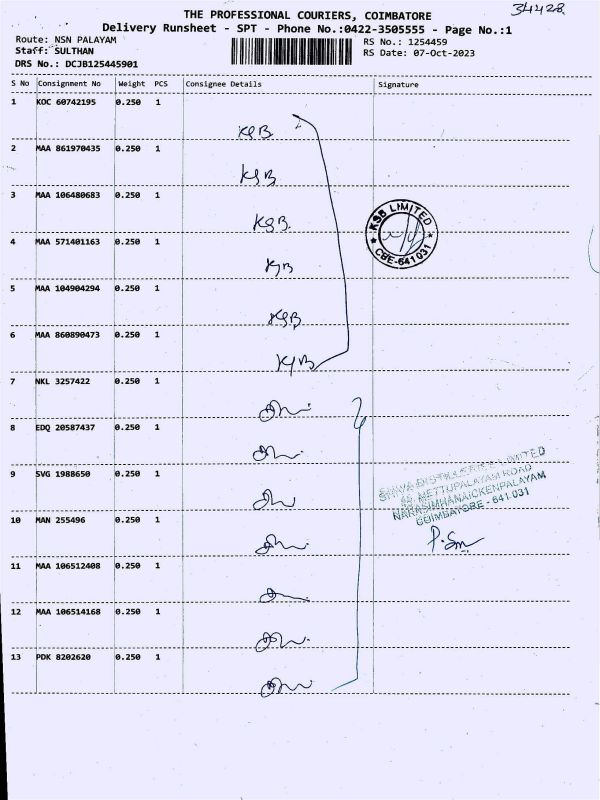 34428
THE PROFESSIONAL COURIERS, COIMBATORE
Delivery Runsheet - SPT - Phone No.:0422-3505555 - Page No.:1
Route: NSN PALAYAM
RS No.: 1254459
Staff: SULTHAN
RS Date: 07-Oct-2023
DRS No.: DCJB125445901
S No Consignment No Weight PCS Consignee Details Signature
1 KOC 60742195 0.250 1
KSB
2 MAA 861970435 0.250 1
KSB
3 MAA 106480683 0.250 1
KSB
KSB LIMITED
CBE-641 031
4 MAA 571401163 0.250 1
KSB
5 MAA 104904294 0.250 1
KSB
6 MAA 860890473 0.250 1
KSB
7 NKL 3257422 0.250 1
8 EDQ 20587437 0.250 1
9 SVG 1988650 0.250 1
SHIVA DISTILLERIES LIMITED
METTUPALAYAM ROAD
NARASIMHANAICKENPALAYAM
COIMBATORE - 641 031
10 MAN 255496 0.250 1
P. Sm
11 MAA 106512408 0.250 1
12 MAA 106514168 0.250 1
13 PDK 8202620 0.250 1